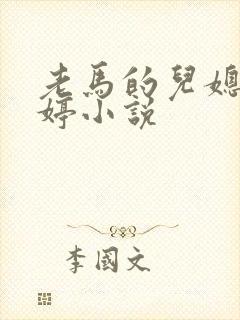 老馬的兒媳
婷小說
李國文